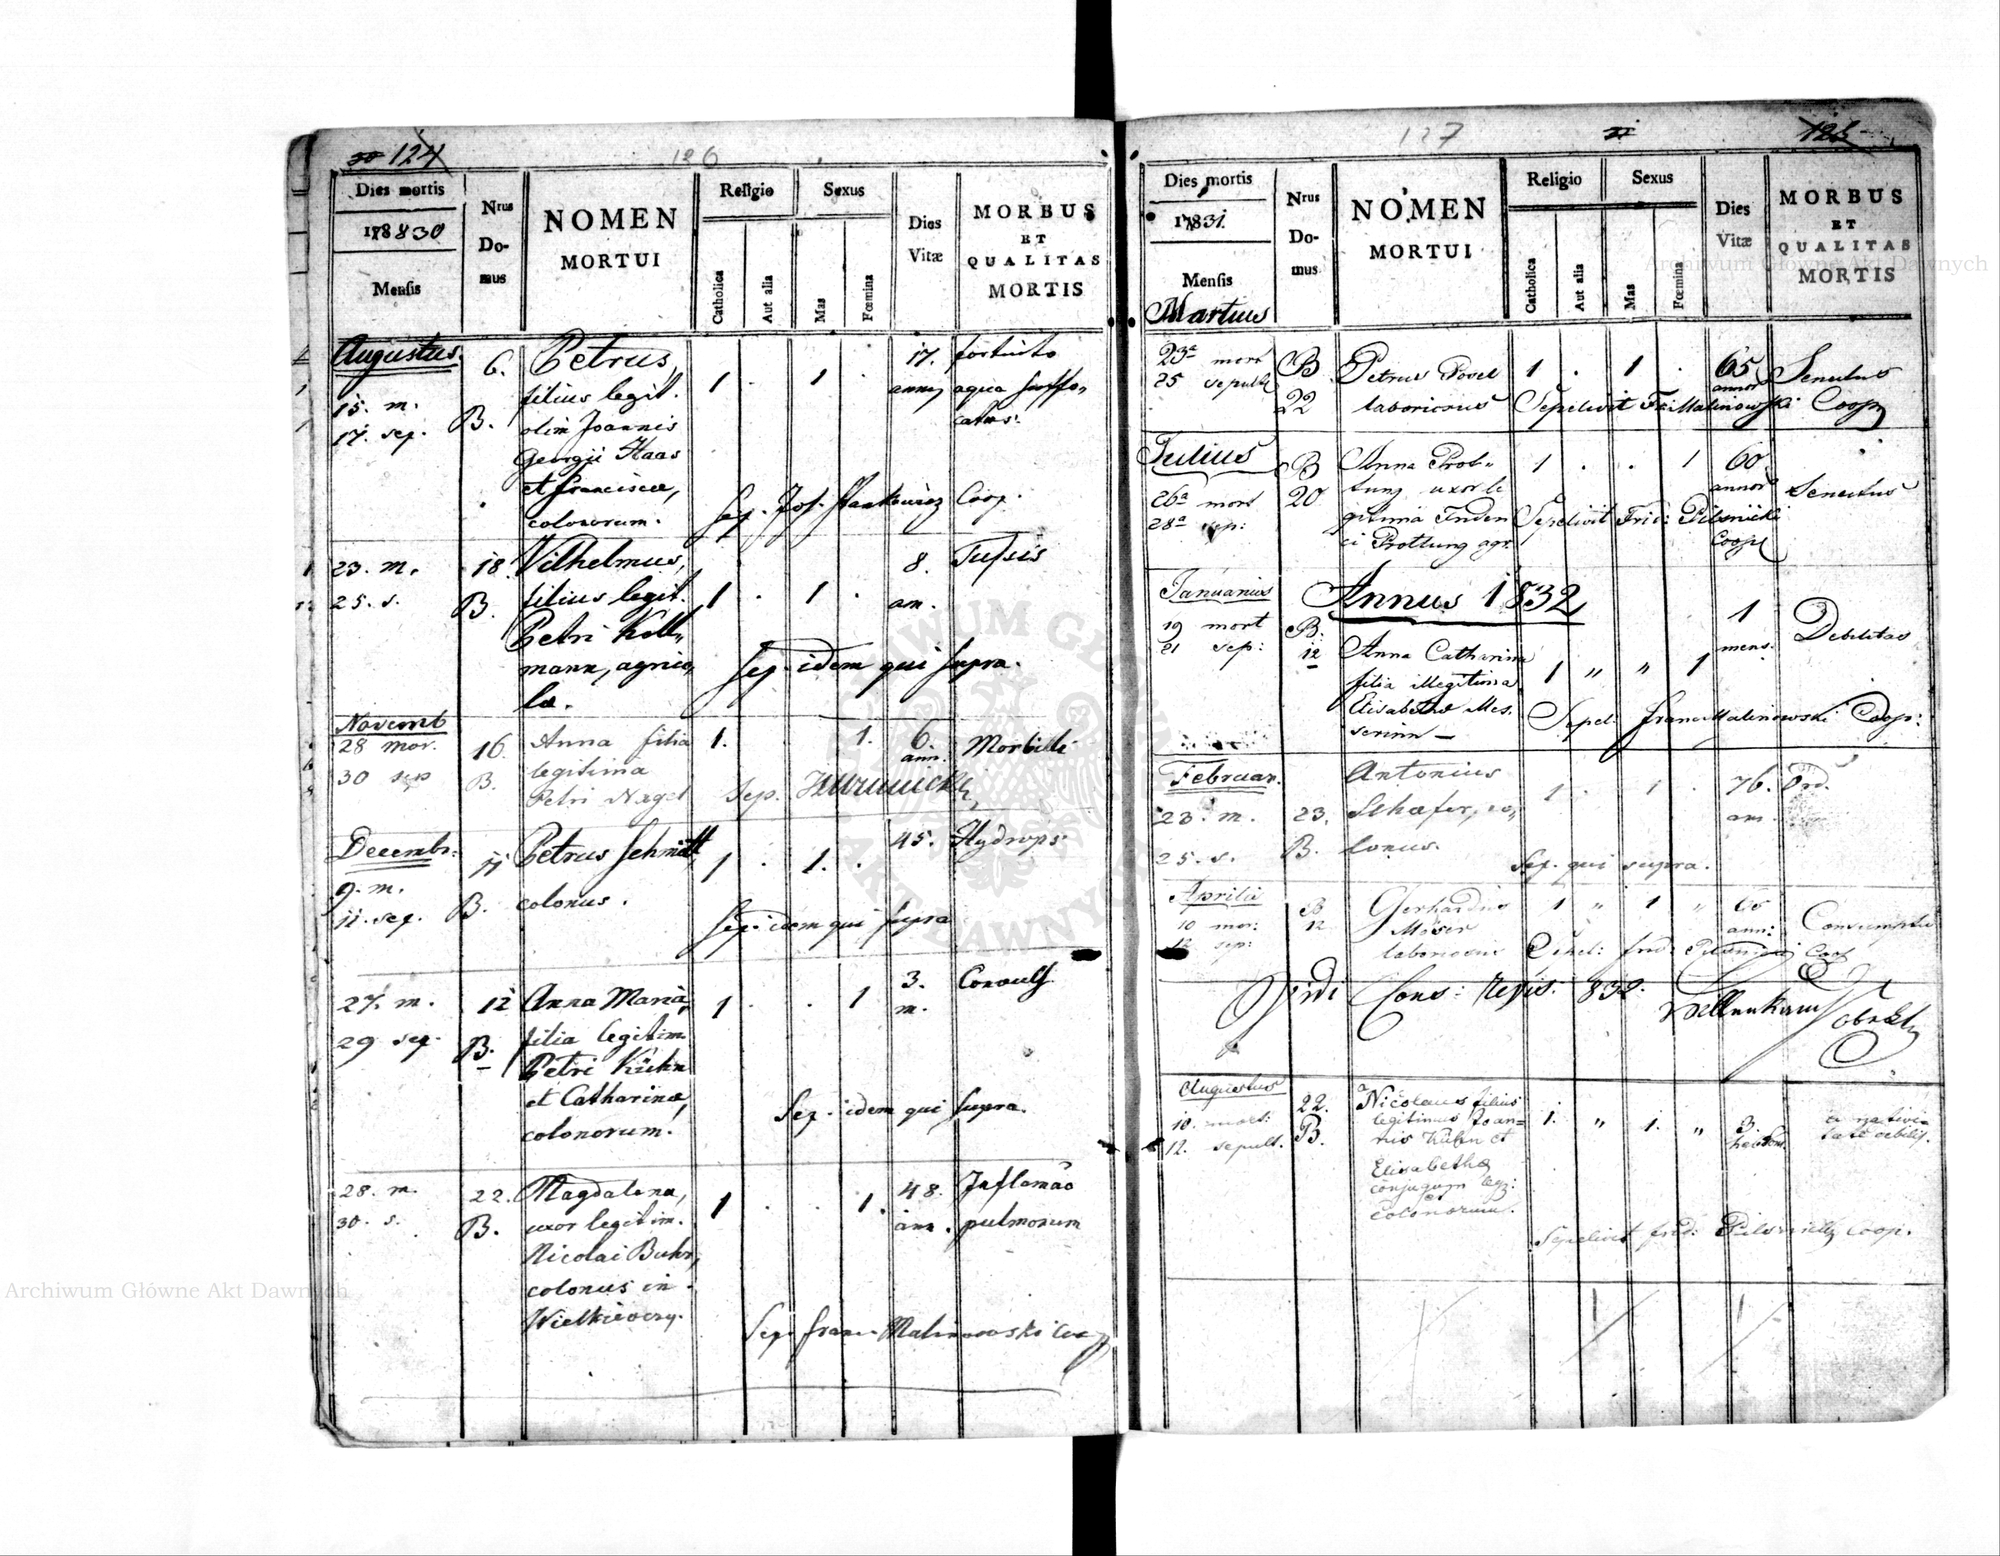 124
126
Dies mortis
Nrus Domus
NOMEN MORTUI
Religio
Sexus
Dies Vitæ
MORBUS ET QUALITAS MORTIS
178830
Mensis
Catholica
Aut alia
Mas
Fœmina
Augustus.
15. m.
17. sep.
6.
B.
Petrus,
filius legit.
olim Joannis
Georgii Haas
et Franciscæ,
colonorum.
1 . 1 .
17.
fortuito
aqua suffo-
catus.
Sep. Jos. Coop.
23. m.
25. s.
18.
B.
Vilhelmus,
filius legit.
Petri Koll-
mann, agrico-
læ.
1 . 1 .
8.
an.
Tussis
Sep. idem qui supra.
Novemb
28 mor.
30 sep
16.
B.
Anna filia
legitima
Petri Nagel
1. 1.
6.
ann.
Morbilli
Sep.
Decembr.
9. m.
11. sep.
11
B.
Petrus Schmitt
colonus.
1 . 1. .
45.
Hydrops.
Sep. idem qui supra
27. m.
29 sep.
12
B.
Anna Maria,
filia legitim.
Petri Kühn
et Catharinæ,
colonorum.
1 . . 1
3.
m.
Convuls
Sep. idem qui supra.
28. m.
30. s.
22.
B.
Magdalena,
uxor legitim.
Nicolai Buhr,
colonus in
1 . . 1.
48.
ann.
Inflamão
pulmonum
Sep. Franc. Malinowski Coop
127
Dies mortis
Nrus Domus
NOMEN MORTUI
Religio
Sexus
Dies Vitæ
MORBUS ET QUALITAS MORTIS
17831.
Mensis
Catholica
Aut alia
Mas
Fœmina
Martius
23a mort
25 sepult
B
22
Petrus Povel
laboriosus
1 . 1 .
65
annor
Senectus
Sepelivit Fr: Malinowski Coop
Julius
26a mort
28a sep:
B
20
Anna Prot-
tung uxor le
gitima
ci Prottung agr.
1 . . 1
60
annor
Senectus
Sepelivit Frid: Pilsnicki
Coop
Annus 1832
Januarius
19 mort
21 sep:
B.
12
Anna Catharina
filia illegitima
Elisabethæ Mes-
serinn —
1 " " 1
1
mens.
Debilitas
Sepel: Franc Malinowski Coop:
Februar.
23. m.
25. s.
23.
B.
Antonius
Schæfer, co-
lonus.
1 . 1 .
76.
an.
Ord.
Sep. qui supra.
Aprilis
10 mor:
12 sep:
B
12
Gerhardus
Moser
laboriosus
1 " 1 "
ann:
Coop
Vidi Cons: 832.
Augustus
10. mort:
12. sepult.
22.
B.
Nicolaus filius
legitimus Joan-
nis Kühn et
Elisabethæ
conjugum leg:
colonorum.
1. " 1. "
3.
hebdom.
a nativi-
tate debilis.
Sepelivit frid: Coop.
Archiwum Główne Akt Dawnych
Archiwum Główne Akt Dawnych
ARCHIWUM GŁÓWNE AKT DAWNYCH